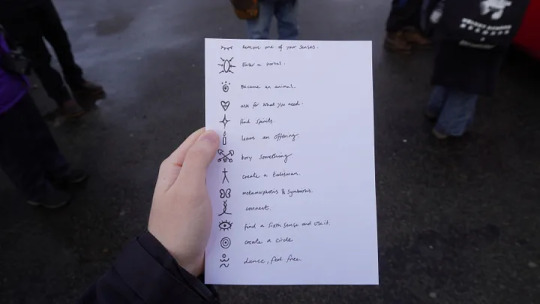 remove one of your senses.
Enter a portal.
Become an animal.
ask for what you need.
find spirits.
leave an offering.
bury something.
create a talisman.
metamorphosis & symbiosis.
connect.
find a sixth sense and use it.
create a circle
dance, feel free.